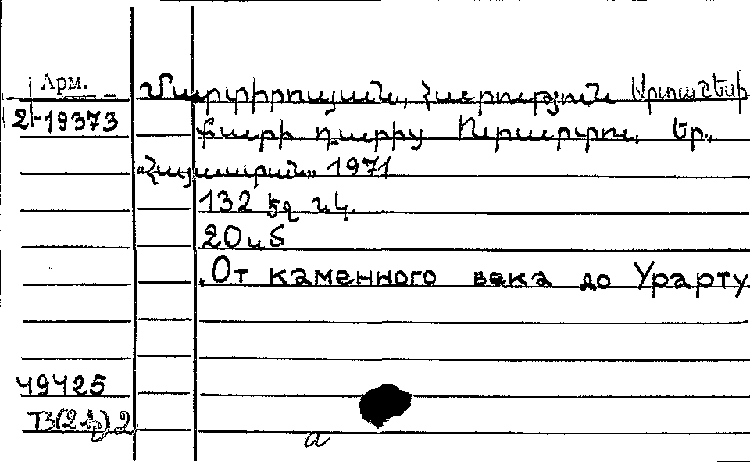 Арм.
Մարտիրոսյան, Հարություն Արտաշեսի
2-19373
Քարի դարից Ուրարտու. Եր.
«Հայաստան» 1971
132 էջ նկ.
20սմ
От каменного века до Урарту
49425
Т3(2Ар)2
а